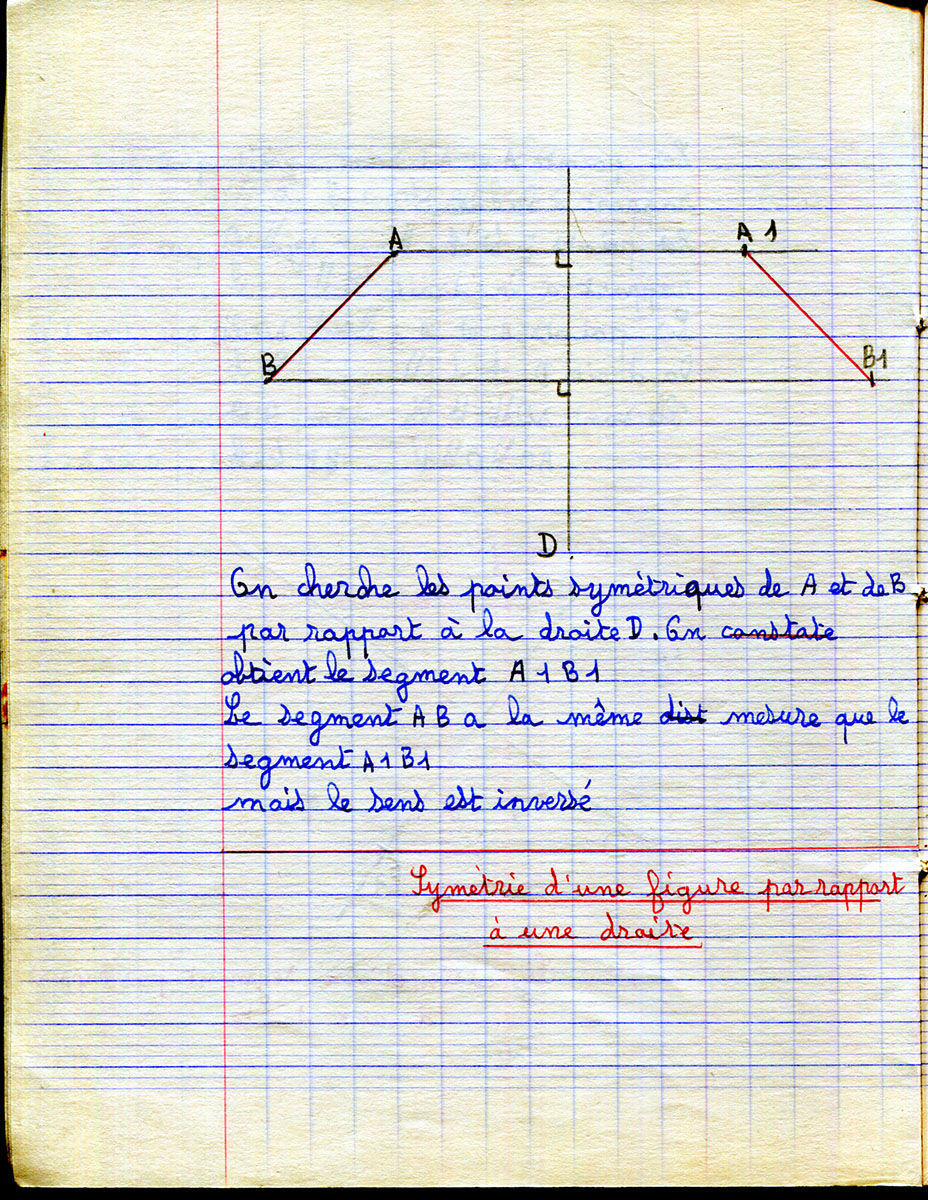 A
A 1
B
B1
D
On cherche les points symétriques de A et de B
par rapport à la droite D. On constate
obtient le segment A1B1
Le segment AB a la même dist mesure que le
segment A1B1
mais le sens est inversé
Symètrie d'une figure par rapport
à une draite